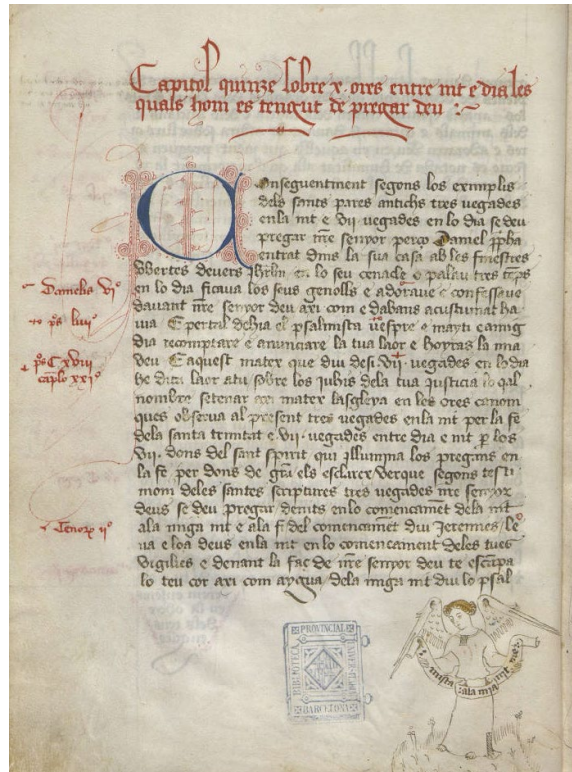 Capitol quinze sobre x. ores entre nit e dia les
quals hom es tengut de pregar deu :~
Conseguentment segons los exemplis
dels sants pares antichs tres vegades
enla nit e vii vegades en lo dia se deu
pregar nre senyor perço Daniel ppha
entrat dins la sua casa ab les finestres
ubertes devers Jhrlm en lo seu cenacle o palau tres
en lo dia ficava los seus genolls e adorave e confessave
davant nre senyor deu axi com e dabans acustumat ha
via E per tal dehia el psalmista vespre e mayti e amig
dia recomptare e anunciare la tua laor e la mia
deu E aquest matex que diu desus .vii. vegades en lo dia
he dita laor atu sobre los iuhis dela tua iusticia lo qal
nombre setenar axi matex lasgleya en les ores canoni
ques observa al present tres vegades enla nit per la fe
dela santa trinitat e vii. vegades entre dia e nit p los
vii. dons del sant spirit qui illumina los pregans en
la fe per dons de gra els esclarex verque segons testi
moni deles santes scriptures tres vegades nre senyor
deus se deu pregar de nits enlo començament dela nit
ala miga nit e ala fi del començamet diu Jeremies
va e loa deus enla nit en lo començament deles tues
vigilies e denant la faç de nre senyor deu te escampa
lo teu cor axi com aygua dela miga nit diu lo psal
Danielis vi°
ps liiii°
ps C xviii
caplo xxi°
ii°
mista ala mia nit
PROVINCIAL
BIBLIOTECA
BARCELONA